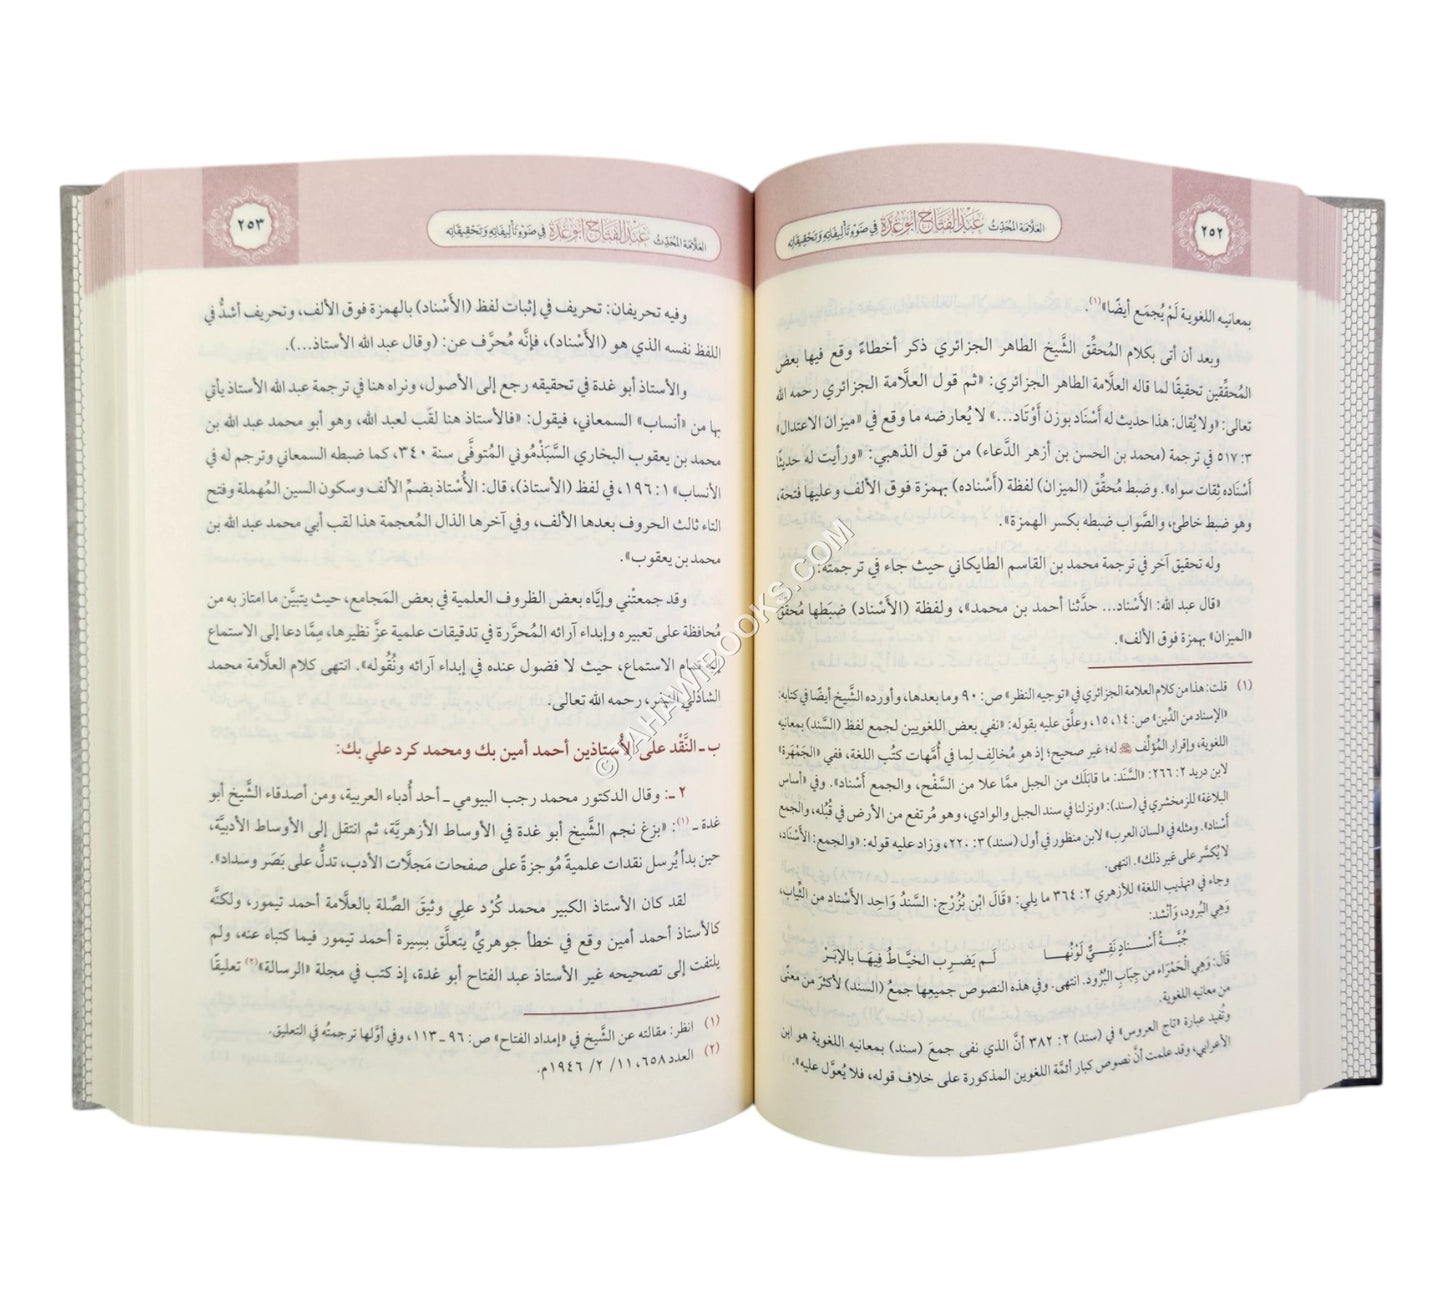 ٢٥٢
العلَّامَة المُحَدِّثُ عَبْدُ الفَتَّاح أبُو غُدَّة فِي ضَوْءِ تَأْلِيفَاتِهِ وَتَحْقِيقَاتِهِ
بمعانيه اللغوية لَمْ يُجمَع أيضًا»(١).
وبعد أن أتى بكلام المُحقِّق الشَّيخ الطاهر الجزائري ذكر أخطاءً وقع فيها بعض
المُحقِّقين تحقيقًا لما قاله العلَّامة الطاهر الجزائري: «ثم قول العلَّامة الجزائري رحمه الله
تعالى: «ولا يُقال: هذا حديث له أَسْنَاد بوزن أَوْتَاد...» لا يُعارضه ما وقع في «ميزان الاعتدال»
٣: ٥١٧ في ترجمة (محمد بن الحسن بن أزهر الدَّعاء) من قول الذهبي: «ورأيت له حديثًا
أَسْنَاده ثقات سواه». وضبط مُحقِّق (الميزان) لفظة (أَسْناده) بهمزة فوق الألف وعليها فتحة،
وهو ضبط خاطئ، والصَّواب ضبطه بكسر الهمزة».
وله تحقيق آخر في ترجمة محمد بن القاسم الطايكاني حيث جاء في ترجمته:
«قال عبد الله: الأَسْناد... حدَّثنا أحمد بن محمد»، ولفظة (الأَسْناد) ضبَطها مُحقِّق
«الميزان» بهمزة فوق الألف».
(١) قلت: هذا من كلام العلامة الجزائري في «توجيه النظر» ص: ٩٠ وما بعدها، وأورده الشَّيخ أيضًا في كتابه:
«الإسناد من الدِّين» ص: ١٤، ١٥، وعلَّق عليه بقوله: «نفي بعض اللغويين لجمع لفظ (السَّند) بمعانيه
اللغوية، وإقرار المُؤلِّف له؛ غير صحيح؛ إذ هو مُخالِف لِما في أُمَّهات كتُب اللغة، ففي «الجَمْهَرة»
لابن دريد ٢: ٢٦٦: «السَّنَد: ما قابَلَك من الجبل ممَّا علا من السَّفْح، والجمع أَسْناد». وفي «أساس
البلاغة» للزمخشري في (سند): «ونزلنا في سند الجبل والوادي، وهو مُرتفع من الأرض في قُبُله، والجمع
أسْناد». ومثله في «لسان العرب» لابن منظور في أول (سند) ٣: ٢٢٠، وزاد عليه قوله: «والجمع: الأَسْنَاد،
لا يُكسَّر على غير ذلك». انتهى.
وجاء في «تهذيب اللغة» للأزهري ٢: ٣٦٤ ما يلي: «قَالَ ابْن بُزُرْج: السَّنَدُ وَاحِد الأَسْناد من الثِّياب،
وَهِي البُرود، وَأنْشد:
جُبَّةُ أَسْنادٍ نَقِيٌّ لَوْنُهَا لَم يَضْرِب الخَيَّاطُ فِيهَا بالإِبَرْ
قَالَ: وَهِي الْحَمْرَاء من جِبَابِ البُرود. انتهى. وفي هذه النصوص جميعِها جمعُ (السند) لأكثرَ من معنًى
من معانيه اللغوية.
وتُفيد عبارة «تاج العروس» في (سند) ٢: ٣٨٢ أنَّ الذي نفى جمعَ (سند) بمعانيه اللغوية هو ابن
الأعرابي، وقد علمت أنَّ نصوص كبار أئمَّة اللغوين المذكورة على خلاف قوله، فلا يُعوَّل عليه».
٢٥٣
العلَّامَة المُحَدِّثُ عَبْدُ الفَتَّاح أبُو غُدَّة فِي ضَوْءِ تَأْلِيفَاتِهِ وَتَحْقِيقَاتِهِ
وفيه تحريفان: تحريف في إثبات لفظ (الأَسْناد) بالهمزة فوق الألف، وتحريف أشدُّ في
اللفظ نفسه الذي هو (الأَسْناد)، فإنَّه مُحرَّف عن: (وقال عبد الله الأستاذ...).
والأستاذ أبو غدة في تحقيقه رجع إلى الأصول، ونراه هنا في ترجمة عبد الله الأستاذ يأتي
بها من «أنساب» السمعاني، فيقول: «فالأستاذ هنا لقَب لعبد الله، وهو أبو محمد عبد الله بن
محمد بن يعقوب البخاري السَّبَذْمُوني المُتوفَّى سنة ٣٤٠، كما ضبطه السمعاني وترجم له في
الأنساب» ١: ١٩٦، في لفظ (الأستاذ)، قال: الأُسْتاذ بضمِّ الألف وسكون السين المُهملة وفتح
التاء ثالث الحروف بعدها الألف، وفي آخرها الذال المُعجمة هذا لقب أبي محمد عبد الله بن
محمد بن يعقوب».
وقد جمعتْني وإيَّاه بعض الظروف العلمية في بعض المَجامع، حيث يتبيَّن ما امتاز به من
مُحافظة على تعبيره وإبداء آرائه المُحرَّرة في تدقيقات علمية عزَّ نظيرها، ممَّا دعا إلى الاستماع
إليه تمام الاستماع، حيث لا فضول عنده في إبداء آرائه ونُقُوله». انتهى كلام العلَّامة محمد
الشاذلي النيفر، رحمه الله تعالى.
ب ـ النَّقْد على الأُستاذين أحمد أمين بك ومحمد كرد علي بك:
٢ ـ: وقال الدكتور محمد رجب البيومي ـ أحد أُدباء العربية، ومن أصدقاء الشَّيخ أبو
غدة ـ(١): «بزغ نجم الشَّيخ أبو غدة في الأوساط الأزهريَّة، ثم انتقل إلى الأوساط الأدبيَّة،
حين بدأ يُرسل نقدات علميةً مُوجزةً على صفحات مَجلَّات الأدب، تدلُّ على بَصَر وسداد».
لقد كان الأستاذ الكبير محمد كُرْد علِي وثيقَ الصِّلة بالعلَّامة أحمد تيمور، ولكنَّه
كالأستاذ أحمد أمين وقع في خطأ جوهريٍّ يتعلَّق بسِيرة أحمد تيمور فيما كتباه عنه، ولم
يلتفت إلى تصحيحه غير الأستاذ عبد الفتاح أبو غدة، إذ كتب في مجلة «الرسالة»(٢) تعليقًا
(١) انظر: مقالته عن الشَّيخ في «إمداد الفتاح» ص: ٩٦ ـ ١١٣، وفي أوَّلها ترجمتُه في التعليق.
(٢) العدد ٦٥٨، ١١/ ٢/ ١٩٤٦م.